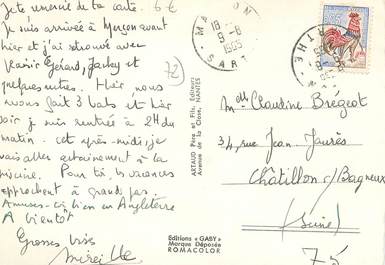 Je te remercie de ta carte. 6€
Je suis arrivée à Marçon avant
hier et j'ai retrouvé avec
plaisir Gérard, Jacky et
quelques autres. Hier, nous
avons fait 3 bals et hier
soir je suis rentrée à 2H du
matin. Cet après-midi je
vais aller certainement à la
piscine. Pour toi, les vacances
approchent à grands pas.
Amuses-toi bien en Angleterre
A bientôt
Grosses bises
Mireille
72
MARÇON
18
9-8
1965
SARTHE
ARTAUD Père et Fils, Editeurs
Avenue de la Close, NANTES
Editions "GABY"
Marque Déposée
ROMACOLOR
Mlle Claudine Brégeot
34, rue Jean Jaurès
Châtillon s/Bagneux
(Seine)
75